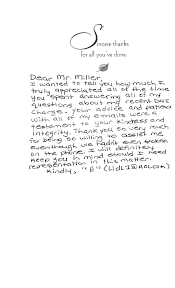 Sincere thanks
for all you've done.
Dear Mr. Miller,
I wanted to tell you how much I
truly appreciated all of the time
you spent answering all of my
questions about my recent DUI
charge. Your advice and patience
with all of my emails were a
testament to your kindness and
integrity. Thank you so very much
for being so willing to assist me
even though we hadn't even spoken
on the phone. I will definitely
keep you in mind should I need
representation in this matter.
Kindly, "E"